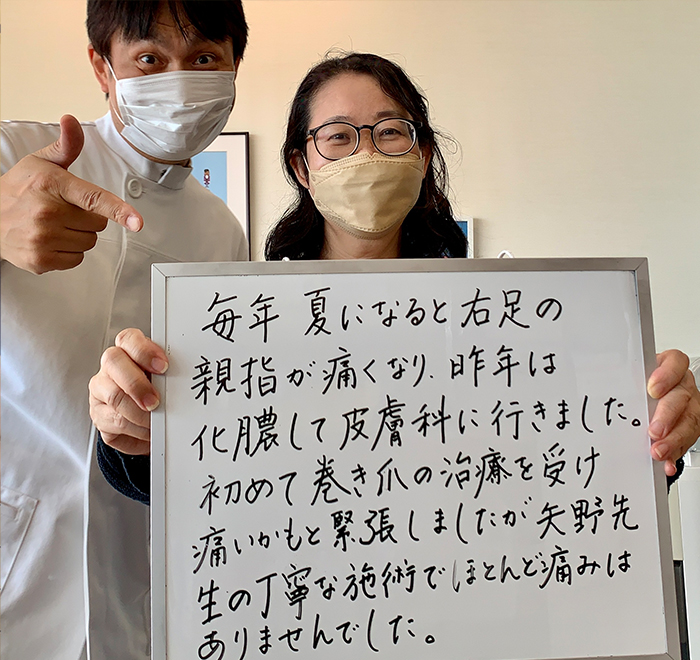 毎年 夏になると右足の
親指が痛くなり、昨年は
化膿して皮膚科に行きました。
初めて巻き爪の治療を受け
痛いかもと緊張しましたが矢野先
生の丁寧な施術でほとんど痛みは
ありませんでした。